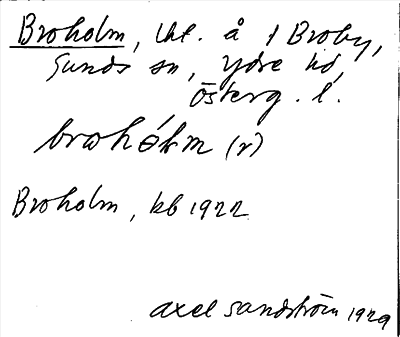 Broholm, lht. å 1 Broby,
Sunds sn, Ydre hd,
Österg. l.
brohólm (r)
Broholm, kb 1922
Axel Sandström 1929